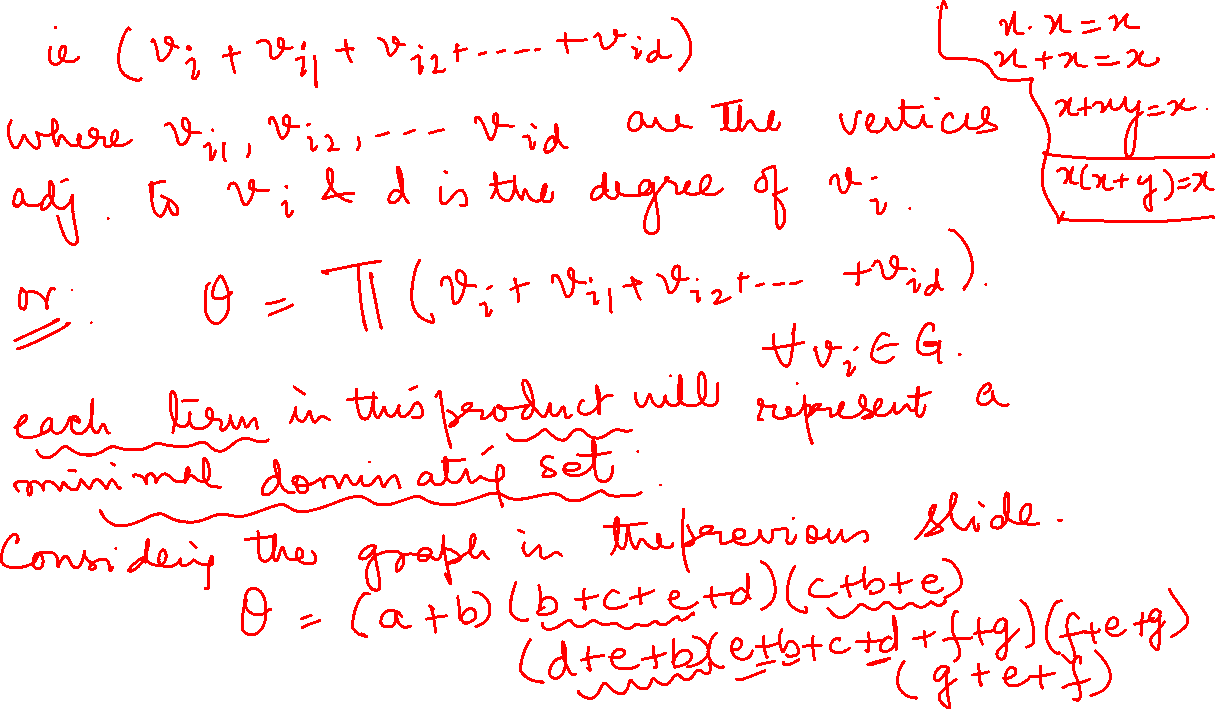 ie (v_i + v_i1 + v_i2 + ..... + v_id)
where v_i1, v_i2, --- v_id are the vertices
adj. to v_i & d is the degree of v_i.
or θ = Π (v_i + v_i1 + v_i2 + --- + v_id).
∀ v_i ∈ G.
each term in this product will represent a
minimal dominating set.
Considering the graph in the previous slide.
θ = (a+b)(b+c+e+d)(c+b+e)
(d+e+b)(e+b+c+d+f+g)(f+e+g)
(g+e+f)
x.x=x
x+x=x
x+xy=x.
x(x+y)=x